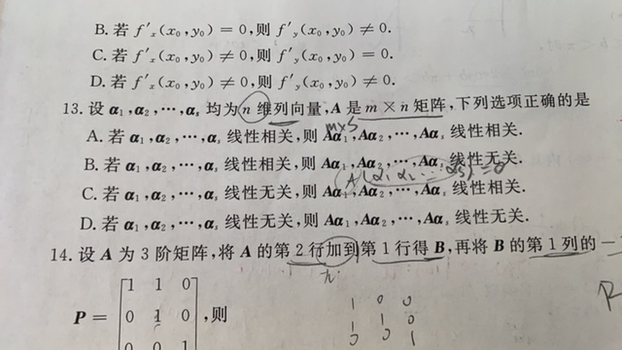 B. 若 f′ₓ(x₀,y₀)=0,则 f′ᵧ(x₀,y₀)≠0.
C. 若 f′ₓ(x₀,y₀)≠0,则 f′ᵧ(x₀,y₀)=0.
D. 若 f′ₓ(x₀,y₀)≠0,则 f′ᵧ(x₀,y₀)≠0.
13. 设 α₁,α₂,⋯,αₛ 均为 n 维列向量,A 是 m×n 矩阵,下列选项正确的是
m×s
A. 若 α₁,α₂,⋯,αₛ 线性相关,则 Aα₁,Aα₂,⋯,Aαₛ 线性相关.
B. 若 α₁,α₂,⋯,αₛ 线性相关,则 Aα₁,Aα₂,⋯,Aαₛ 线性无关.
A(α₁ α₂ ⋯ αₛ)=0
C. 若 α₁,α₂,⋯,αₛ 线性无关,则 Aα₁,Aα₂,⋯,Aαₛ 线性相关.
D. 若 α₁,α₂,⋯,αₛ 线性无关,则 Aα₁,Aα₂,⋯,Aαₛ 线性无关.
14. 设 A 为 3 阶矩阵,将 A 的第 2 行加到第 1 行得 B,再将 B 的第 1 列的 −
1 1 0
P= 0 1 0 ,则
0 0 1
1 0 0
1 1 0
0 0 1